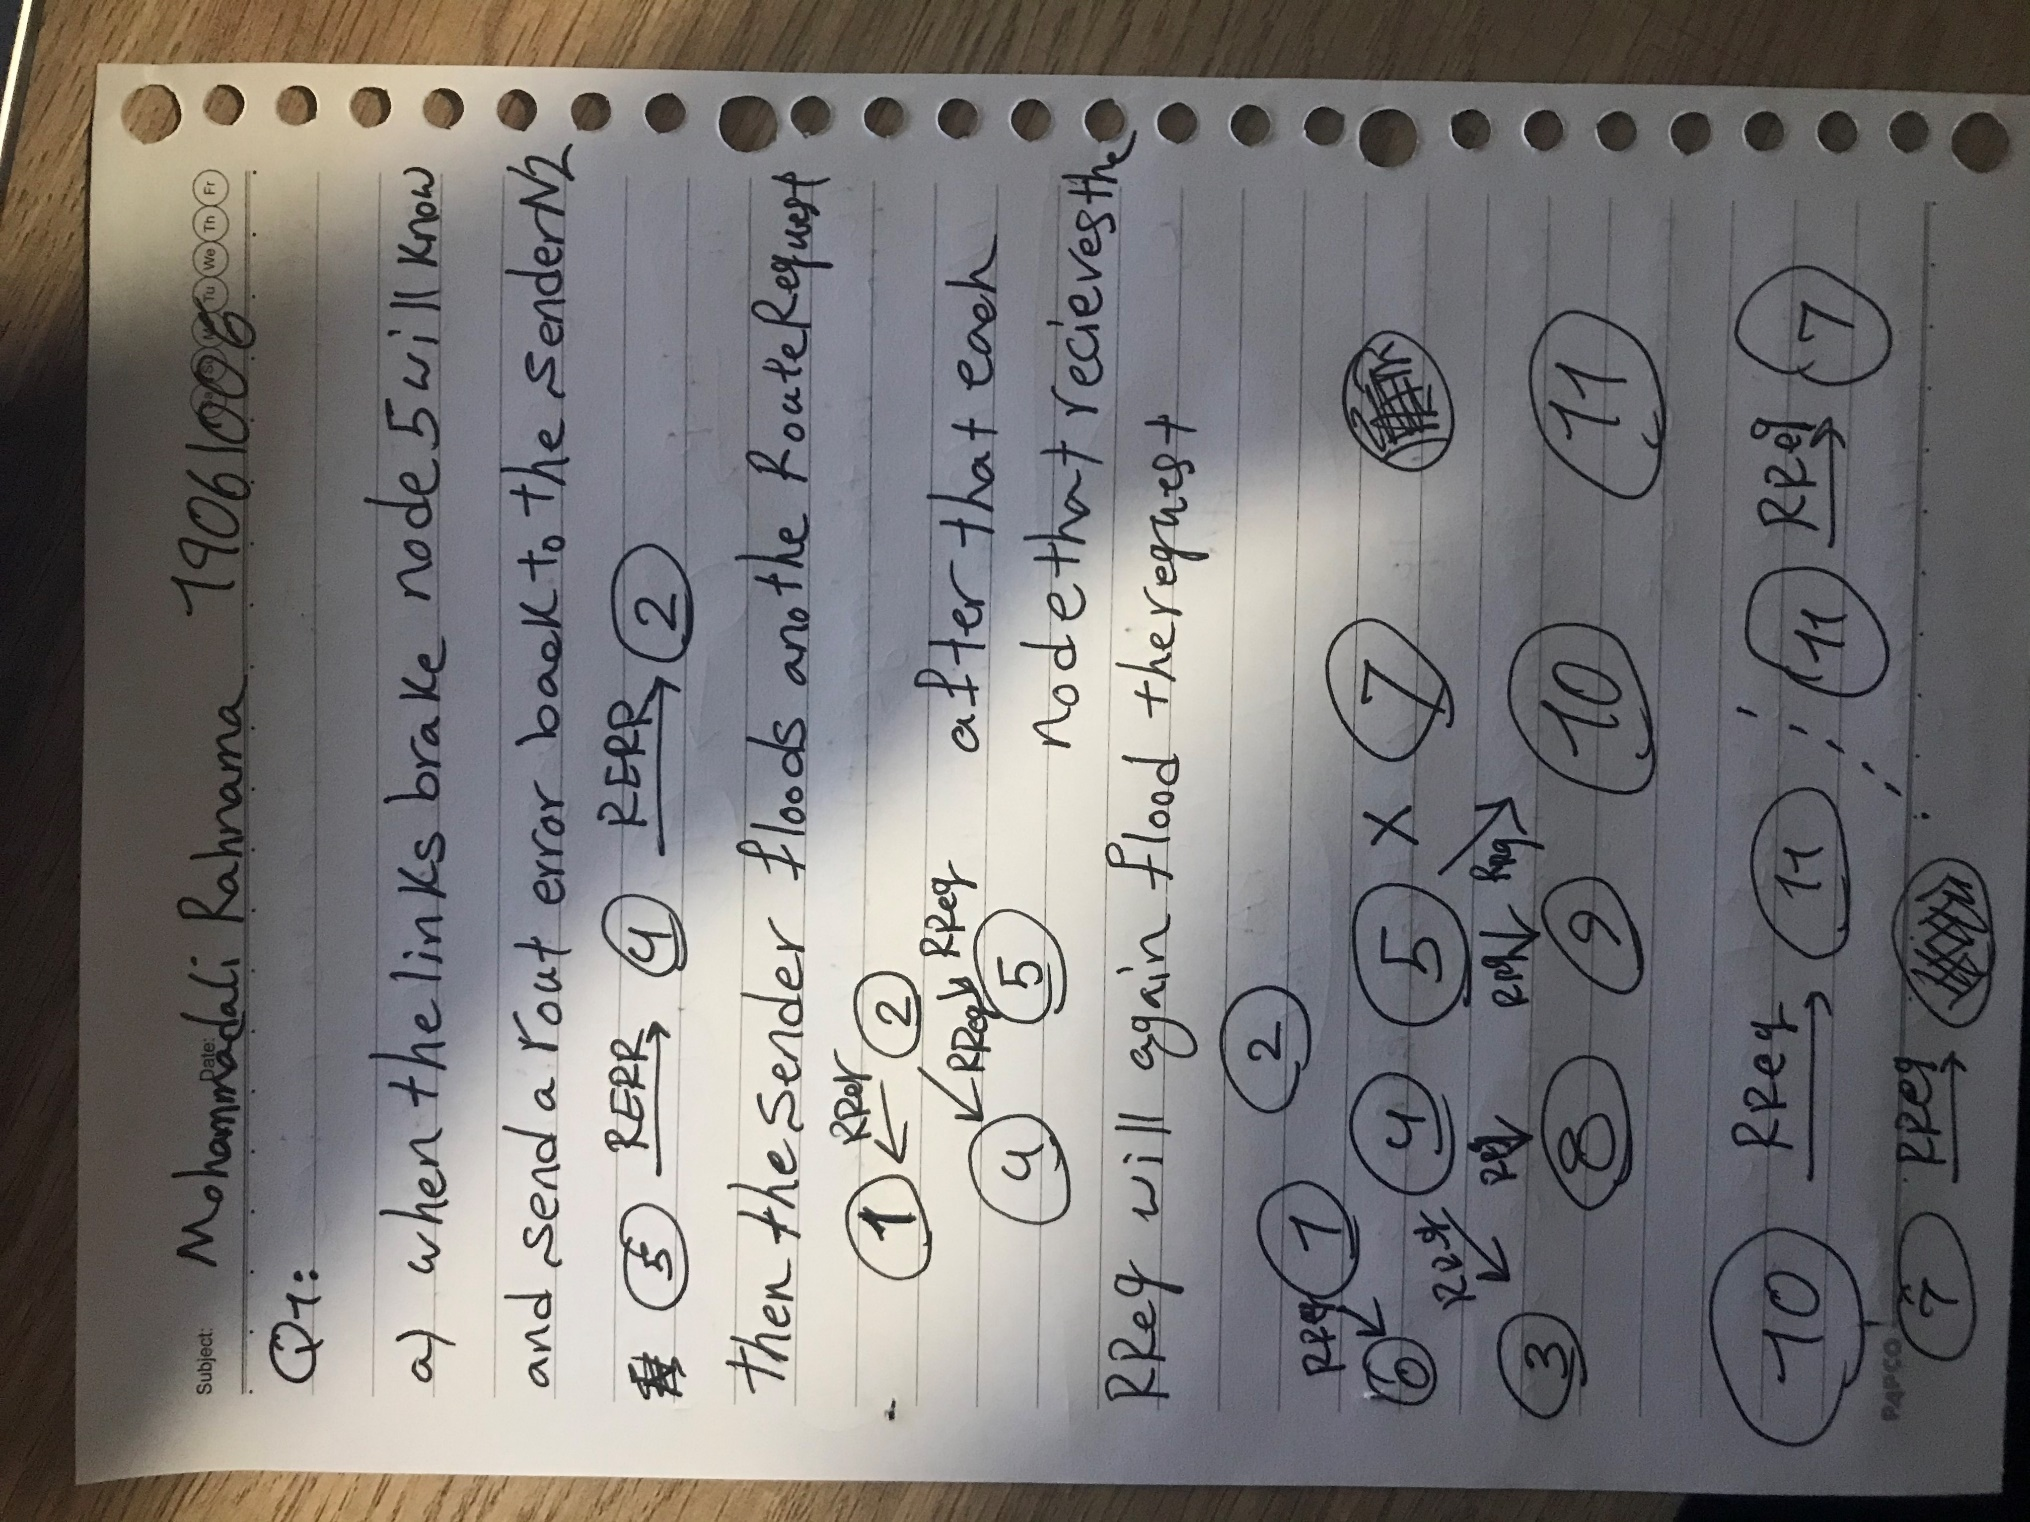 Subject:
Date:
Mohammadali Rahnama 19061006
Tu We Th Fr
Q1:
a) when the links brake node 5 will know
and send a rout error back to the sender N2
5 RERR 4 RERR 2
then the sender floods anothe Route Request
1 RReq 2
RReq RReq
4 5
after that each
node that recieves the
RReq will again flood the request
2
RReq 1
6 4 5 X 7
RReq RReq RReq RReq
3 8 9 10 11
10 RReq 11 11 RReq 7
7 RReq
PAPCO